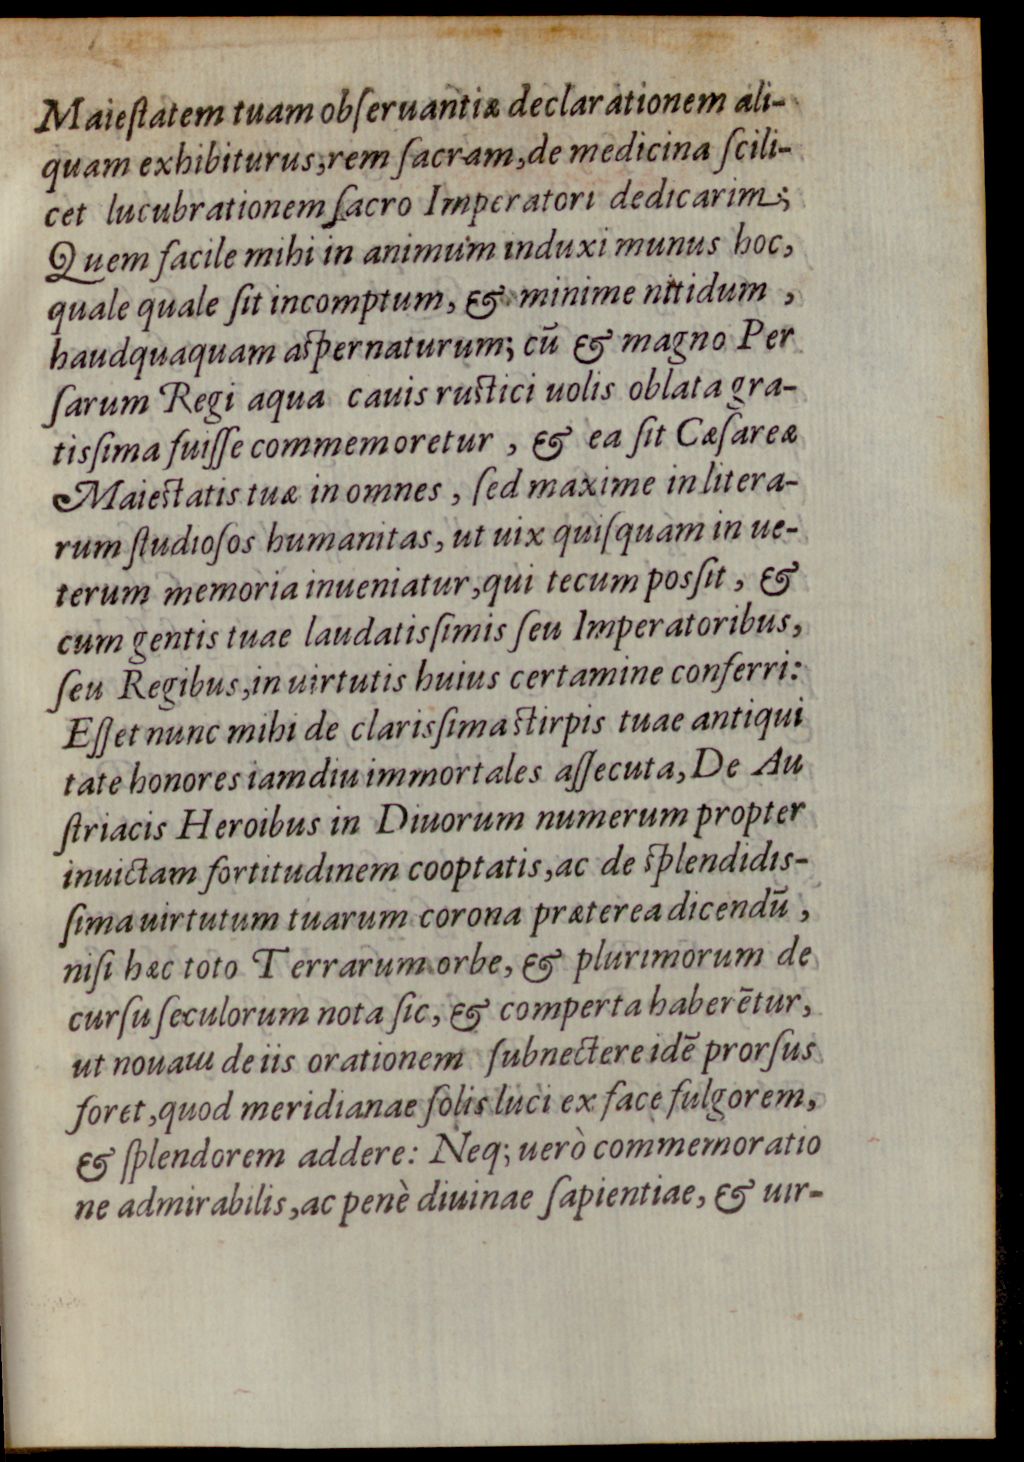 Maieſtatem tuam obſeruantiæ declarationem ali-
quam exhibiturus, rem ſacram, de medicina ſcili-
cet lucubrationem ſacro Imperatori dedicarim;
Quem facile mihi in animum induxi munus hoc,
quale quale ſit incomptum, & minime nitidum,
haudquaquam aſpernaturum; cū & magno Per
ſarum Regi aqua cauis ruſtici uolis oblata gra-
tisſima fuiſſe commemoretur, & ea ſit Cæſareæ
Maieſtatis tuæ in omnes, ſed maxime in litera-
rum ſtudioſos humanitas, ut uix quiſquam in ue-
terum memoria inueniatur, qui tecum posſit, &
cum gentis tuae laudatisſimis ſeu Imperatoribus,
ſeu Regibus, in uirtutis huius certamine conferri:
Eſſet nunc mihi de clarisſima ſtirpis tuae antiqui
tate honores iamdiu immortales aſſecuta, De Au
ſtriacis Heroibus in Diuorum numerum propter
inuictam fortitudinem cooptatis, ac de ſplendidis-
ſima uirtutum tuarum corona præterea dicendū,
niſi hæc toto Terrarum orbe, & plurimorum de
curſu ſeculorum nota ſic, & comperta haberētur,
ut nouam de iis orationem ſubnectere idē prorſus
foret, quod meridianae ſolis luci ex face fulgorem,
& ſplendorem addere: Neq; uerò commemoratio
ne admirabilis, ac penè diuinae ſapientiae, & uir-